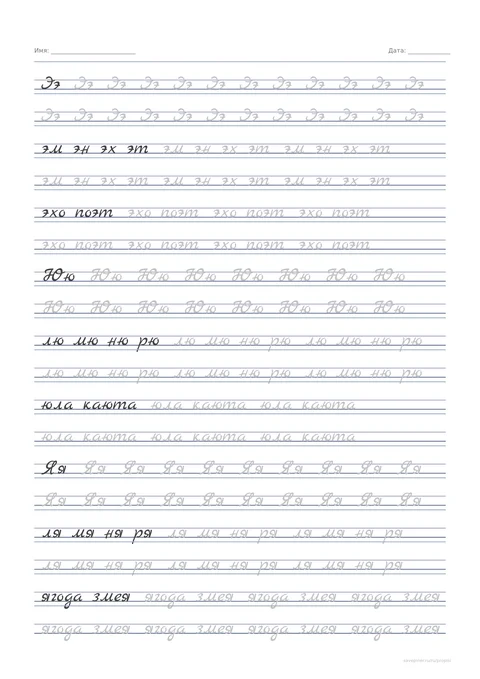 Имя: Дата:
Ээ Ээ Ээ Ээ Ээ Ээ Ээ Ээ Ээ Ээ Ээ Ээ
Ээ Ээ Ээ Ээ Ээ Ээ Ээ Ээ Ээ Ээ Ээ Ээ
эм эн эх эт эм эн эх эт эм эн эх эт
эм эн эх эт эм эн эх эт эм эн эх эт
эхо поэт эхо поэт эхо поэт эхо поэт
эхо поэт эхо поэт эхо поэт эхо поэт
Юю Юю Юю Юю Юю Юю Юю Юю
Юю Юю Юю Юю Юю Юю Юю Юю
лю мю ню рю лю мю ню рю лю мю ню рю
лю мю ню рю лю мю ню рю лю мю ню рю
юла каюта юла каюта юла каюта
юла каюта юла каюта юла каюта
Яя Яя Яя Яя Яя Яя Яя Яя Яя Яя
Яя Яя Яя Яя Яя Яя Яя Яя Яя Яя
ля мя ня ря ля мя ня ря ля мя ня ря
ля мя ня ря ля мя ня ря ля мя ня ря
ягода змея ягода змея ягода змея ягода змея
ягода змея ягода змея ягода змея ягода змея